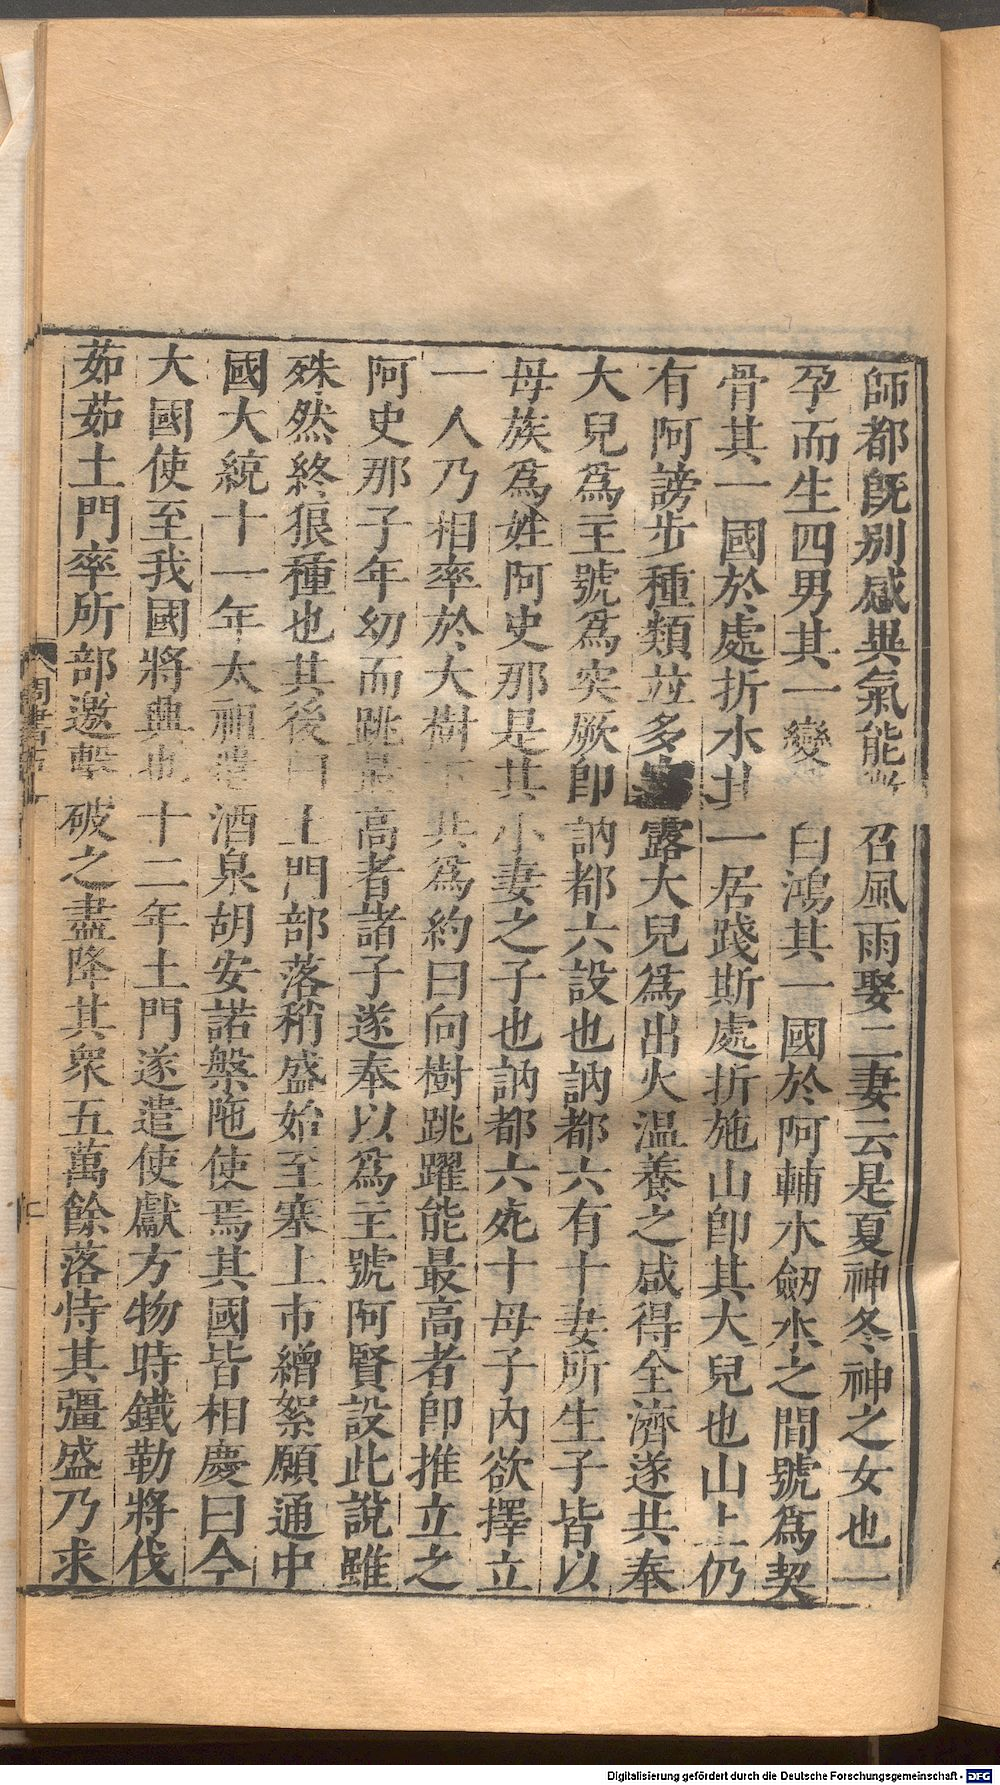 師都旣别感異氣能召風雨娶二妻云是夏神冬神之女也一
孕而生四男其一變曰鴻其一國於阿輔水劒水之間號爲契
骨其一國於處折水其一居踐斯處折施山卽其大兒也山上仍
有阿謗步種類竝多露大兒爲出火温養之咸得全濟遂共奉
大兒爲主號爲突厥卽訥都六設也訥都六有十妻所生子皆以
母族爲姓阿史那是其小妻之子也訥都六死十母子内欲擇立
一人乃相率於大樹下共爲約曰向樹跳躍能最高者卽推立之
阿史那子年幼而跳最高者諸子遂奉以爲主號阿賢設此說雖
殊然終狼種也其後曰土門部落稍盛始至塞上市繒絮願通中
國大統十一年太祖遣酒泉胡安諾槃陁使焉其國皆相慶曰今
大國使至我國將興也十二年土門遂遣使獻方物時鐵勒將伐
茹茹土門率所部邀擊破之盡降其衆五萬餘落恃其彊盛乃求
周書
Digitalisierung gefördert durch die Deutsche Forschungsgemeinschaft - DFG